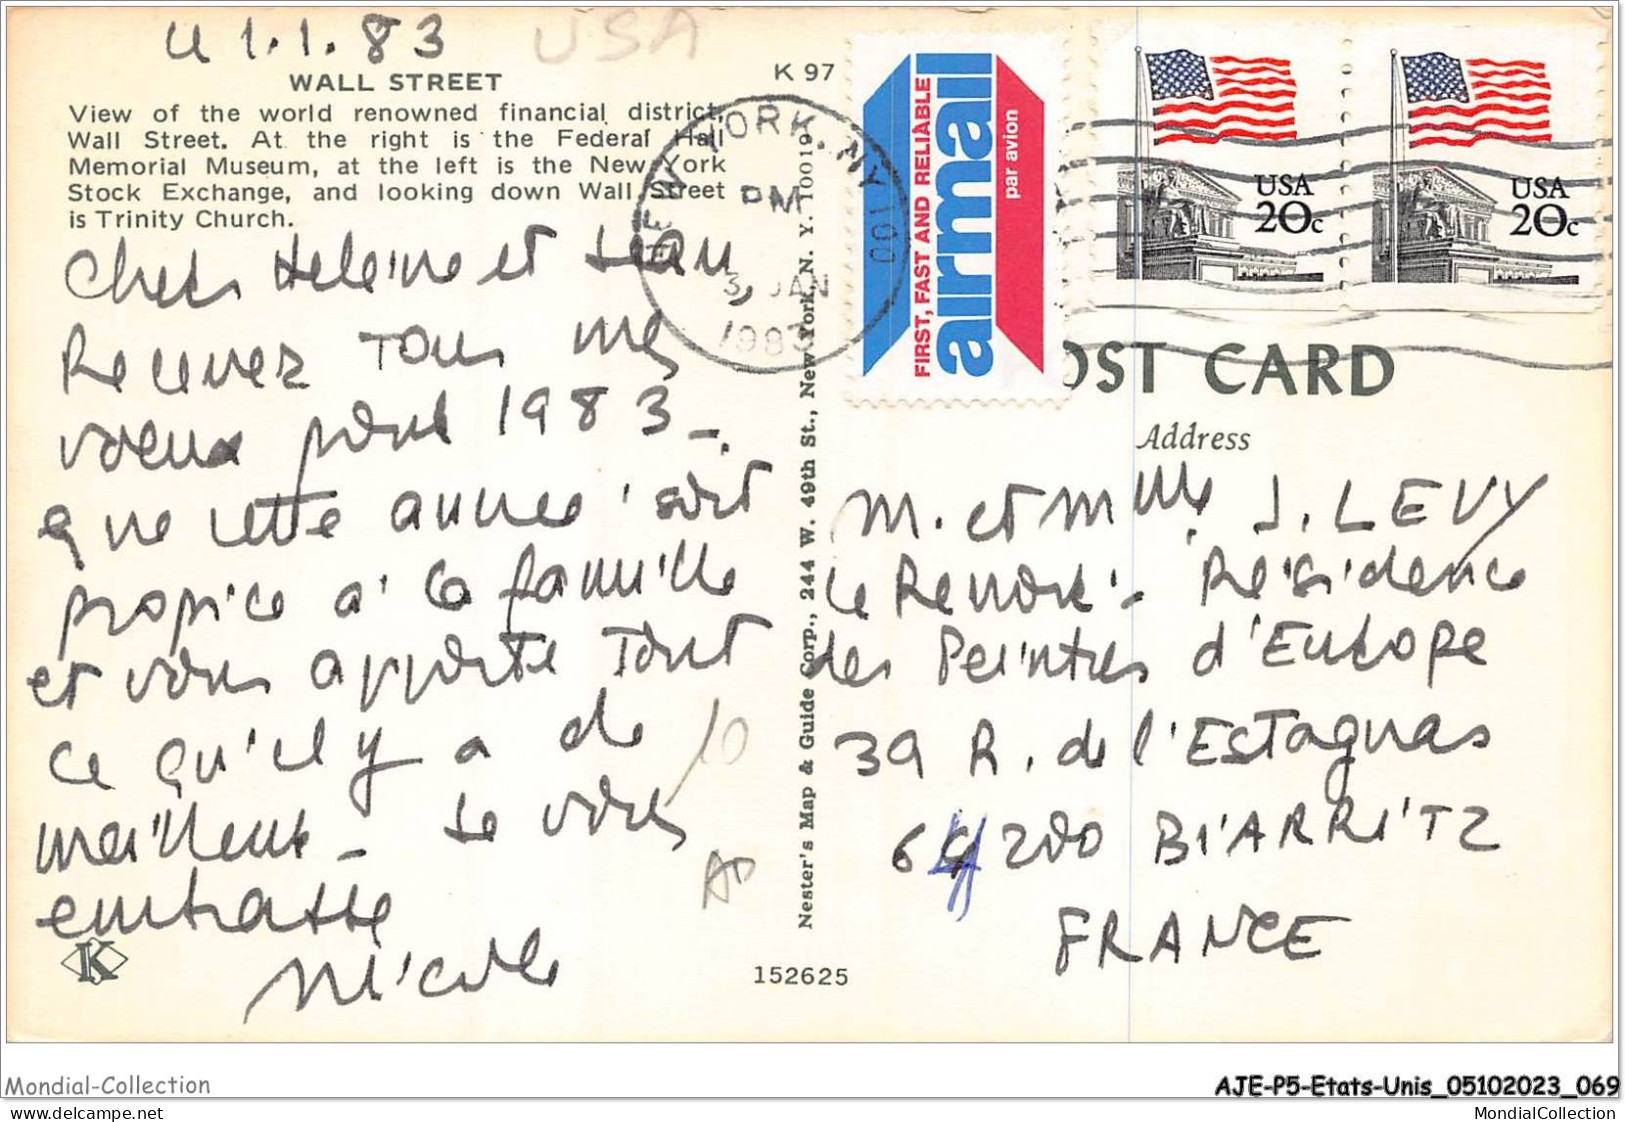 le 1.1.83
USA
WALL STREET
K 97
View of the world renowned financial district,
Wall Street. At the right is the Federal Hall
Memorial Museum, at the left is the New York
Stock Exchange, and looking down Wall Street
is Trinity Church.
Chers Helene et Jean
Recevez Tous mes
voeux pour 1983 -.
que cette annee soit
propice a' la famille
et vous apporte Tout
ce qu'il y a de
meilleur - Je vous
embrasse
Nicole
10
K
152625
Nester's Map & Guide Corp., 244 W. 49th St., New York, N. Y. 10019
NEW YORK, NY
PM
3 JAN
1983
100
FIRST, FAST AND RELIABLE
airmail
par avion
USA
20c
USA
20c
POST CARD
Address
M. et Mme J. LEVY
Le Renoir - Résidence
des Peintres d'Europe
39 R. de l'Estagnas
64200 BIARRITZ
FRANCE
Mondial-Collection
AJE-P5-Etats-Unis_05102023_069
MondialCollection